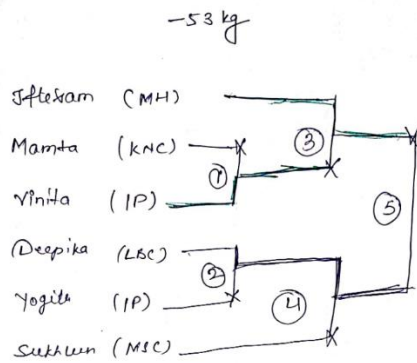 -53 kg
Iftesam (MH)
Mamta (KNC)
①
③
Vinita (IP)
⑤
Deepika (LBC)
②
④
Yogita (IP)
Sukhwn (MSC)